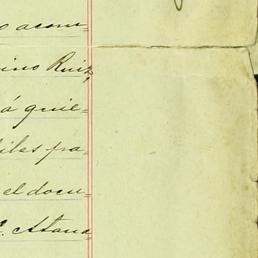 o acom=
ino Ruiz,
á quie=
iles fra=
el docu=
. Atana=